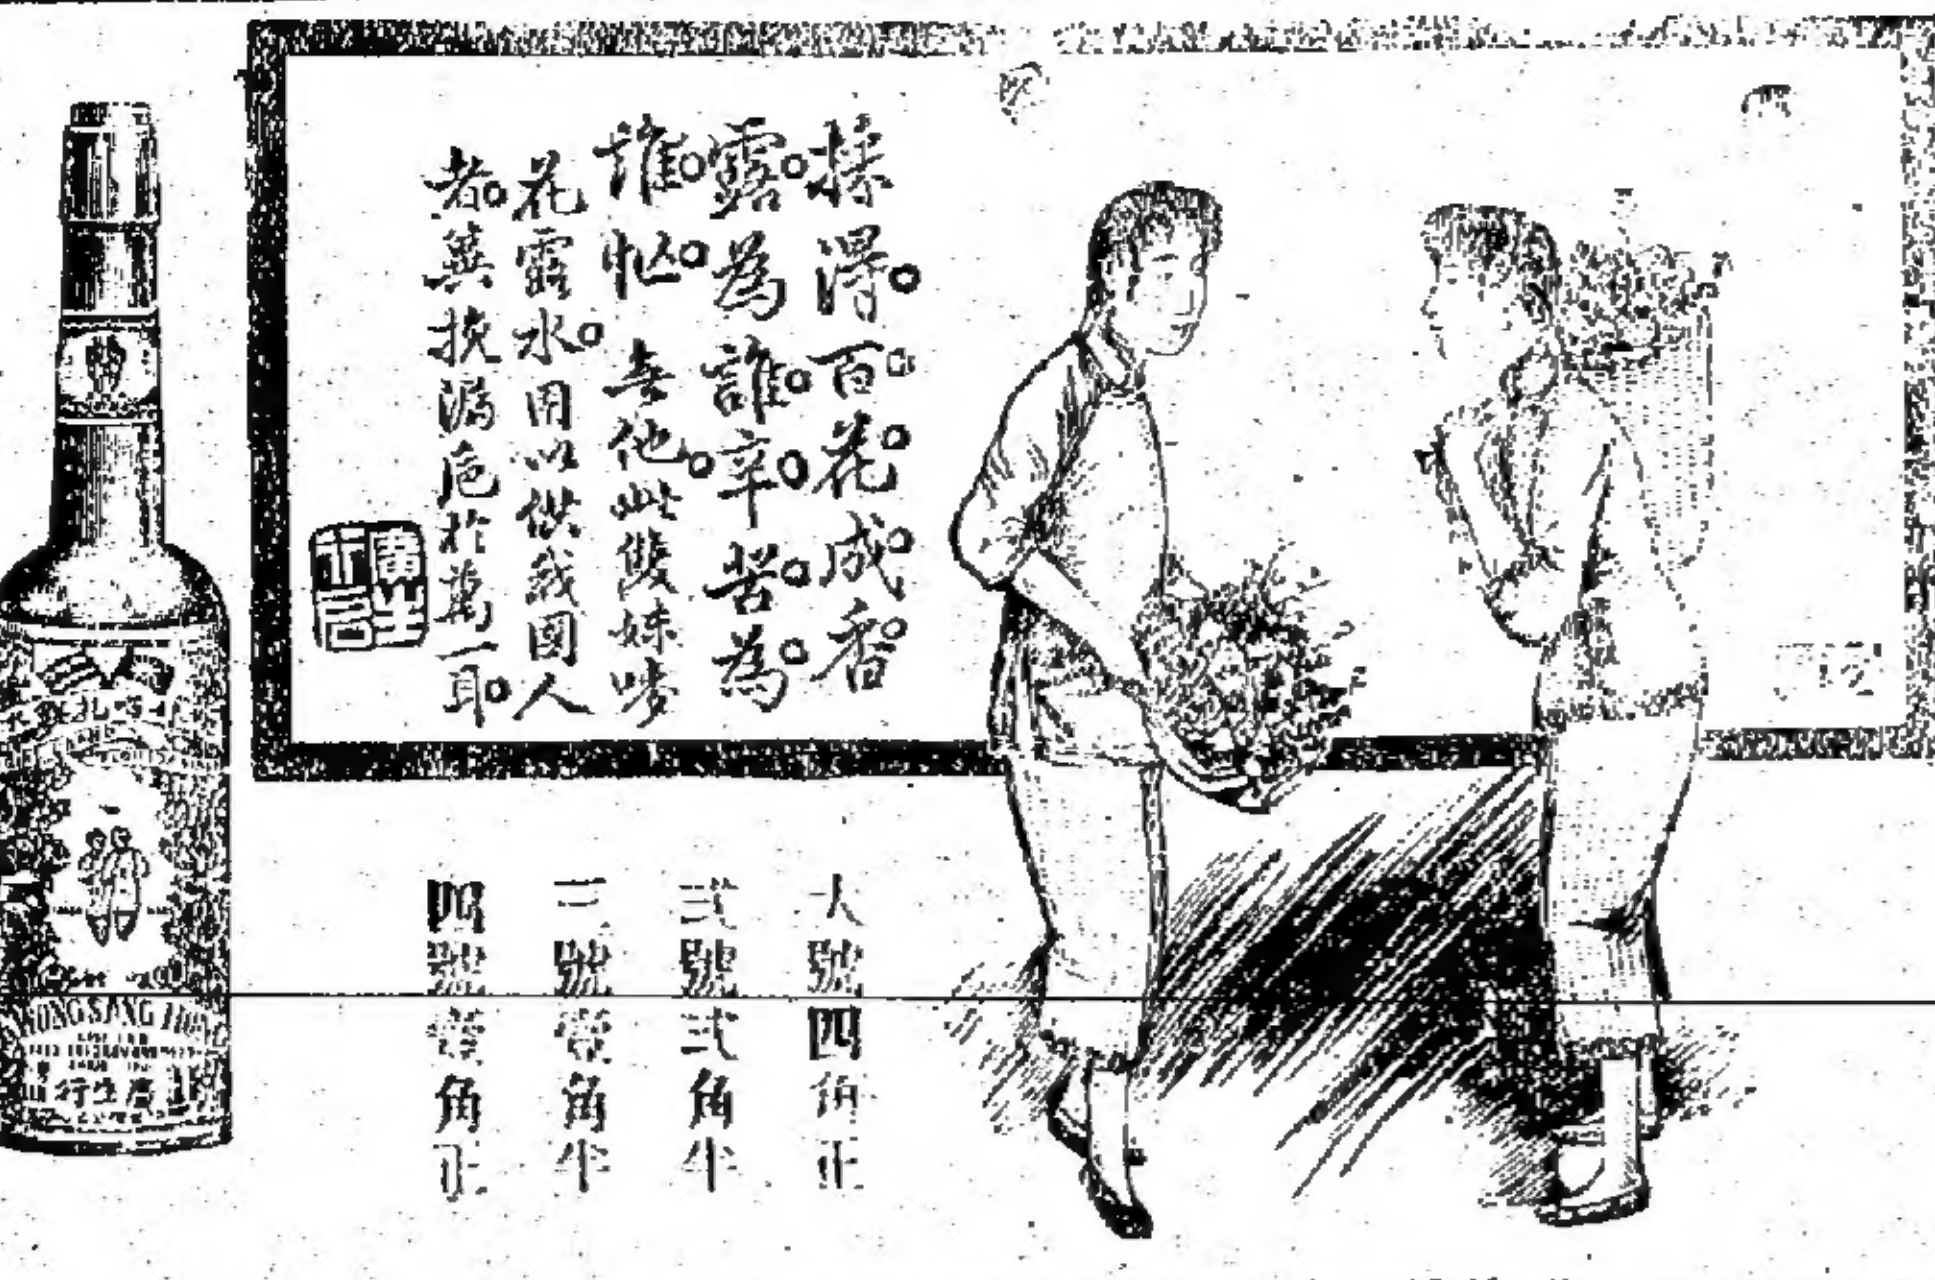 採得百花成香
露為誰辛苦為
誰忙無他此雙妹嘜
花露水用以供我國人
者冀挽漏卮於萬一耳
廣生行
大號四角正
弍號弍角半
三號壹角半
四號壹角正
WONG SANG HONG
行生廣